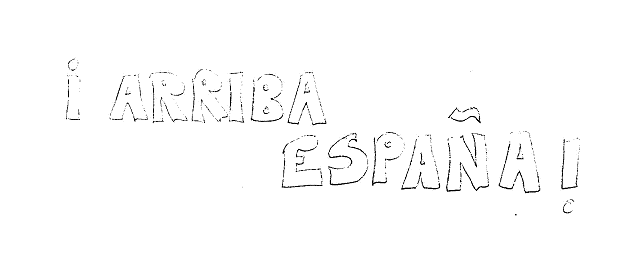 ¡ ARRIBA
ESPAÑA!